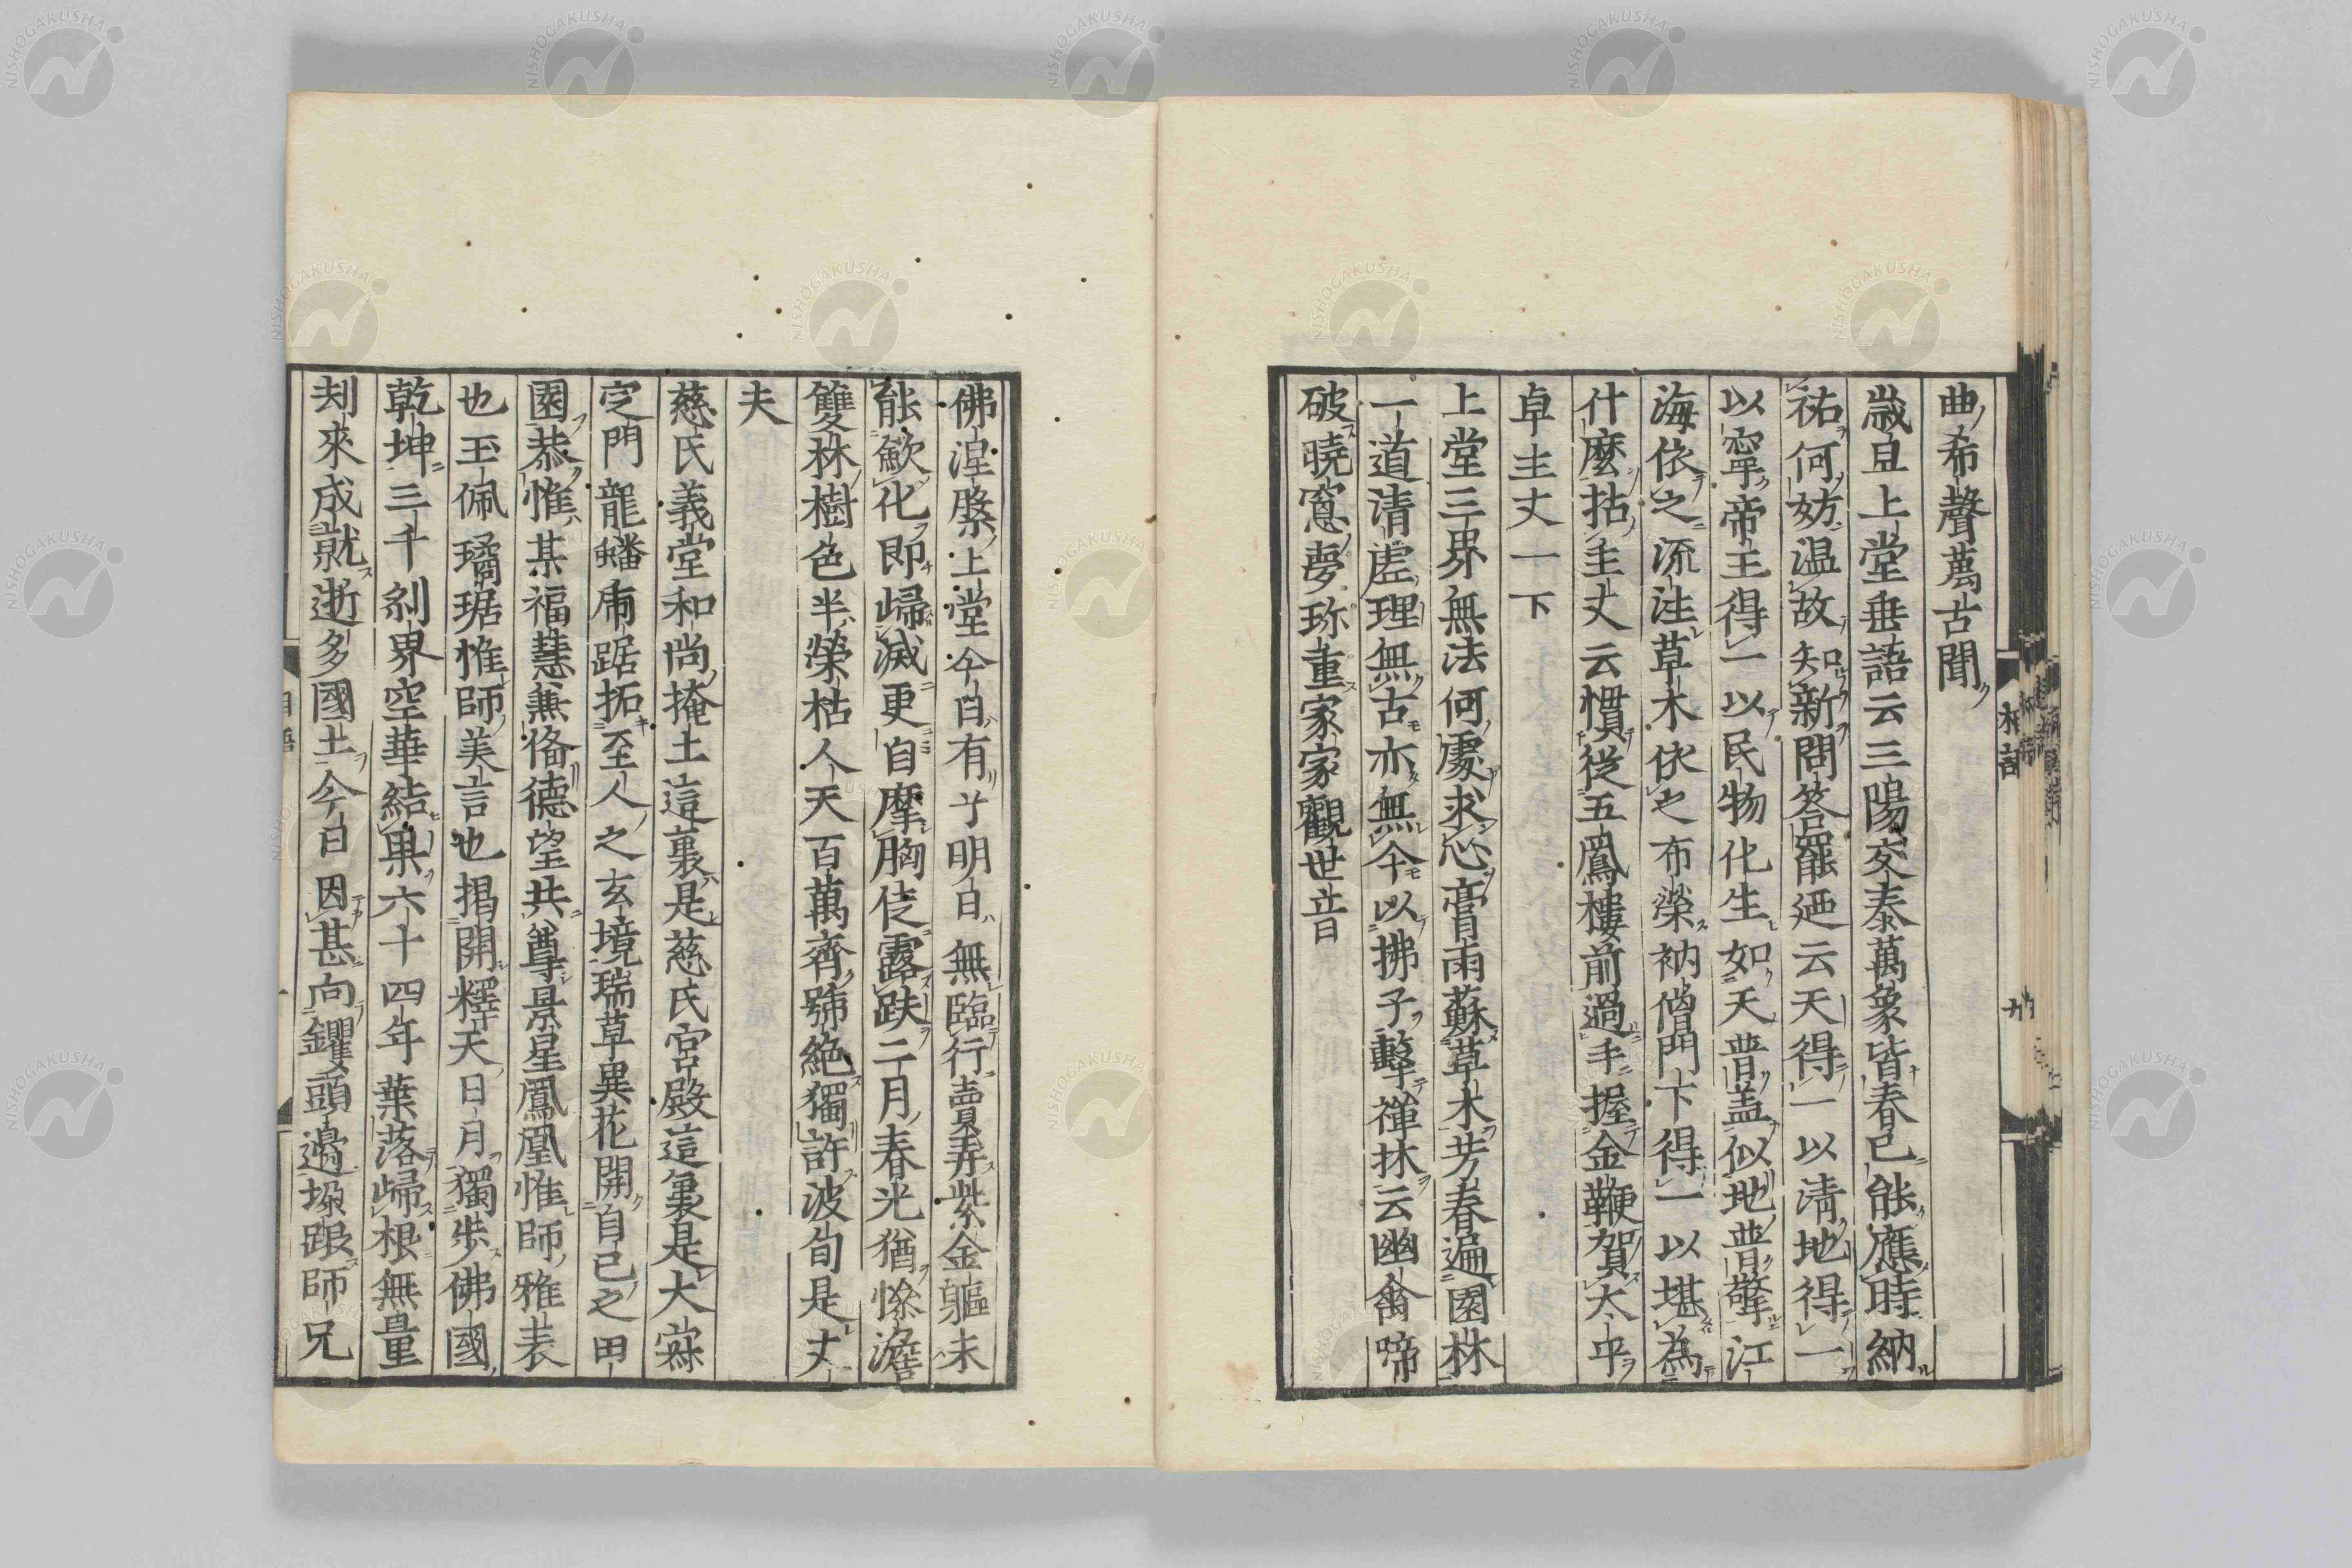 曲希聲萬古聞
歲旦上堂垂語云三陽交泰萬象皆春已能應時納
祐何妨温故知新問答罷廼云天得一以清地得一
以寧帝主得一以民物化生如天普盖似地普擎江
海依之流注草木依之布榮衲僧門下得一以堪為
什麼拈主丈云慣從五鳳樓前過手握金鞭賀太平
卓主丈一下
上堂三界無法何處求心膏雨蘇草木芳春遍園林
一道清虗理無古亦無今以拂子擊禪牀云幽禽啼
破曉窓夢珎重家家觀世音
佛涅槃上堂今日有乎明日無臨行賣弄紫金軀未
能斂化即歸滅更自摩胸徒露趺二月春光猶慘澹
雙林樹色半榮枯人天百萬齊號絶獨許波旬是丈
夫
慈氏義堂和尚掩土這裏是慈氏宮殿這裏是大寂
定門龍蟠虎踞拓至人之玄境瑞草異花開自己之田
園恭惟某福慧兼俻德望共尊景星鳳凰惟師雅表
也玉佩璚琚惟師美言也揭開釋天日月獨步佛國
乾坤三千剎界空華結菓六十四年葉落歸根無量
刧來成就逝多國土今日因甚向钁頭邊垜跟師兄
NISHOGAKUSHA